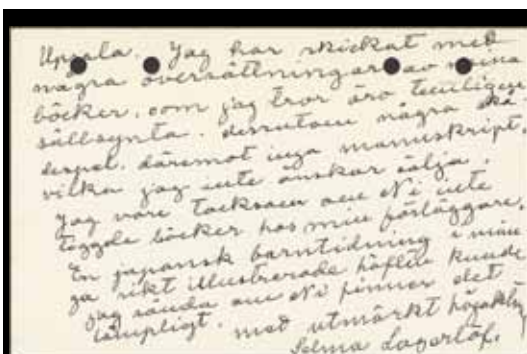 Upsala. Jag har skickat med
några översättningar av mina
böcker, som jag tror äro temligen
sällsynta. dessutom några
däremot inga manuskript,
vilka jag inte önskar sälja.
Jag vore tacksam om Ni inte
böcker hos min förläggare.
En japansk barntidning i
rikt illustrerade häften kunde
jag sända om Ni finner det
lämpligt. med utmärkt högaktning
Selma Lagerlöf.